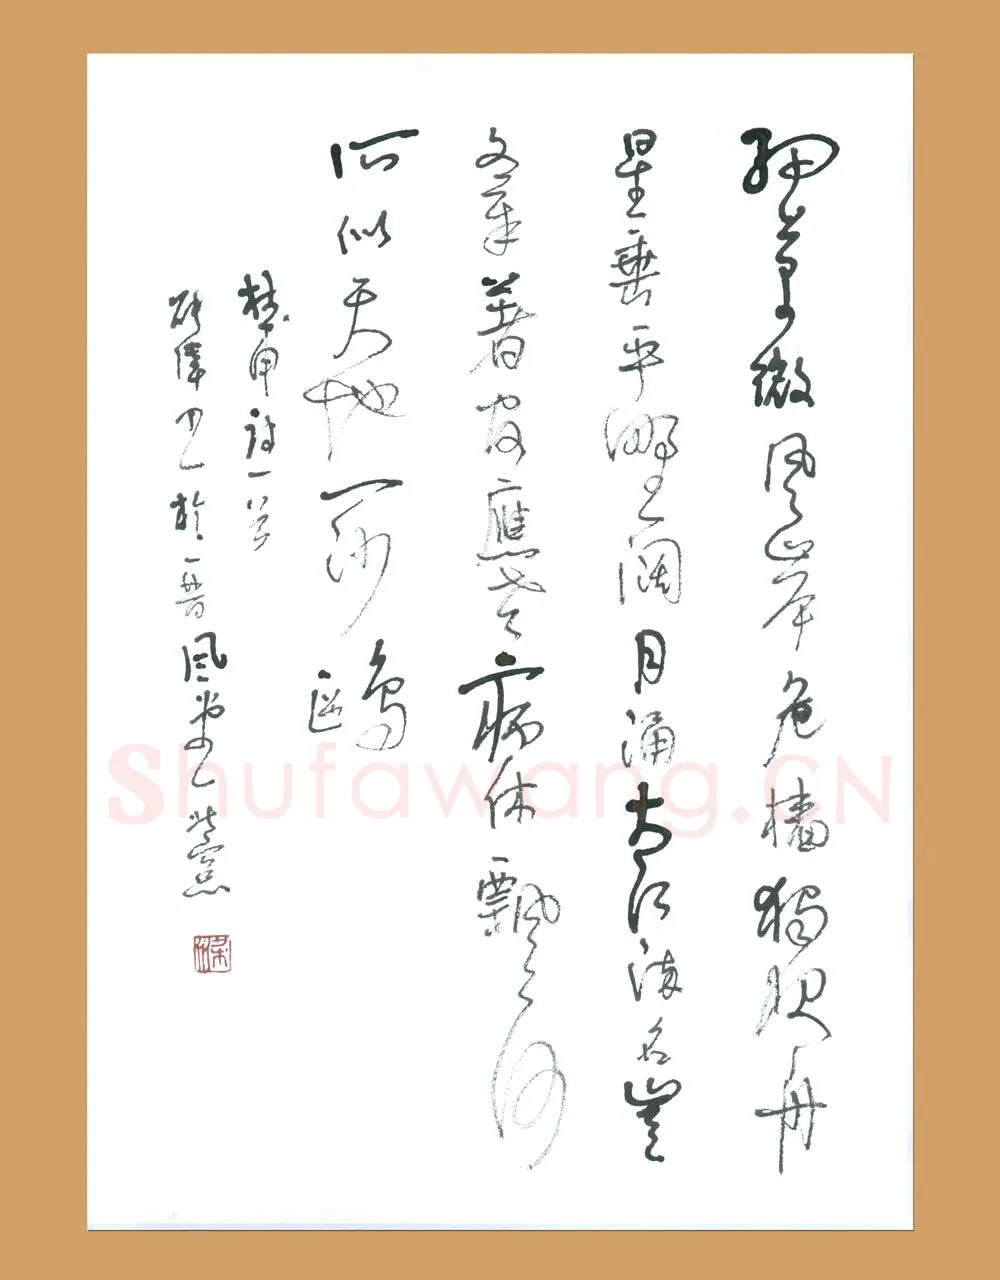 細草微風岸危檣獨夜舟
星垂平野闊月涌大江流名豈
文章著官應老病休飄飄何
所似天地一沙鷗
杜甫詩一首
於一風堂
Shufawang.CN